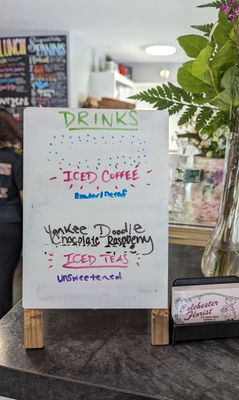 LUNCH
DRINKS
ICED COFFEE
Regular/Decaf
Yankee Doodle
Chocolate Raspberry
ICED TEAS
UNSweetened
Colchester
Florist